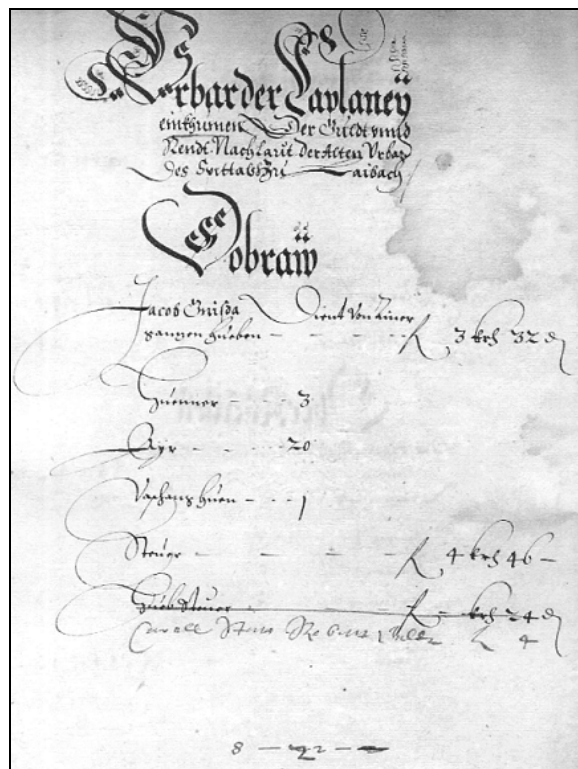 Urbar der Caplaney
einkhumen Der Güldt vnnd
Rendt Nach laut der Alten Urbar
des Spittals Zu Laibach
Dobraw
Jacob Dient von Ainer
ganzen Hueben - - - - f 3 krh 32 d
Huenner - - 3
Ayr - - - 20
Vaschang huen - - 1
Steuer - - - - - f 4 krh 46 -
Hueb Steuer - - - f - krh 24 d
4
8 - 42 -